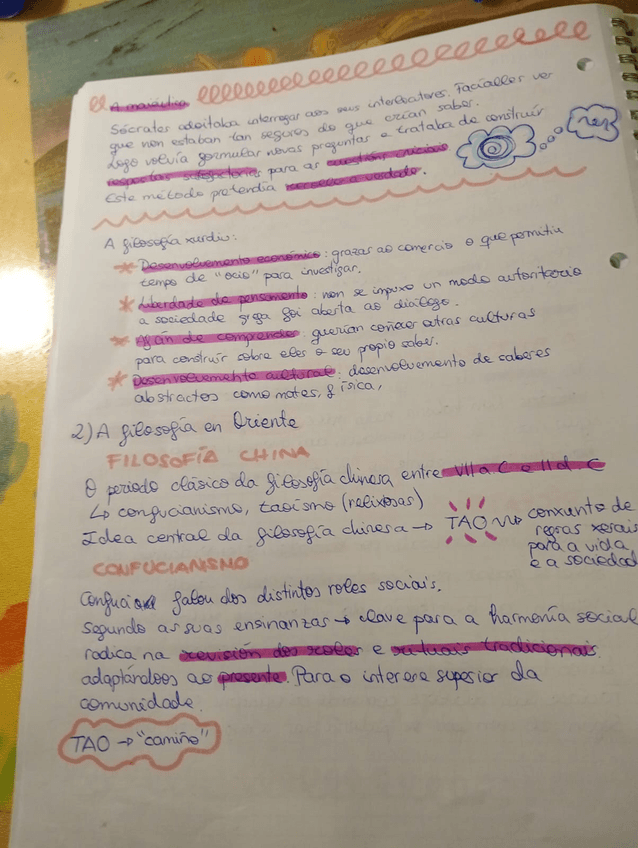 A maiéutica
Sócrates adoitaba interrogar aos seus interlocutores. Facíalles ver
que non estaban tan seguros do que crían saber.
Logo volvía formular novas preguntas e trataba de construír
respostas satisfactorias para as cuestións cruciais
Este método pretendía a verdade.
A filosofía xurdiu:
* Desenvolvemento económico: grazas ao comercio o que permitiu
tempo de "ocio" para investigar.
* Liberdade de pensamento: non se impuxo un modo autoritario
a sociedade grega foi aberta ao diálogo.
* Afán de comprender: querían coñecer outras culturas
para construír sobre eles o seu propio saber.
* Desenvolvemento cultural: desenvolvemento de saberes
abstractos como mates, física,
2) A filosofía en Oriente
FILOSOFÍA CHINA
O periodo clásico da filosofía chinesa entre VII a.C e II d.C
↳ confucianismo, taoísmo (relixosas)
Idea central da filosofía chinesa → TAO conxunto de
regras xerais
para a vida
e a sociedad
CONFUCIANISMO
falou dos distintos roles sociais.
Segundo as suas ensinanzas → clave para a harmonía social
radica na revisión dos roles e rituais tradicionais
adaptándoos ao presente. Para o interese superior da
comunidade.
TAO → "camiño"